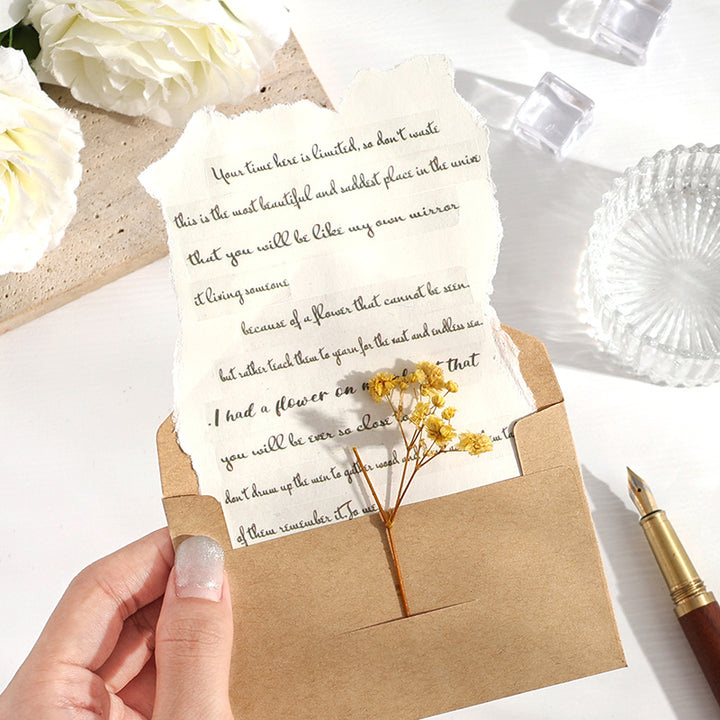 Your time here is limited, so don't waste
this is the most beautiful and saddest place in the unive
that you will be like my own mirror
it living someone
because of a flower that cannot be seen.
but rather teach them to yearn for the vast and endless sea.
. I had a flower on that
you will be ever so close to
don't drum up the men to gather wood and to
of them remember it. To me